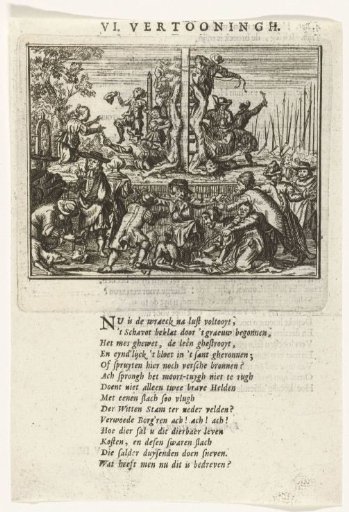 VI. VERTOONINGH.
NU is de wraeck na lust voltoyt,
't Schavot beklat door 't graeuw begonnen,
Het mes ghewet, de leên ghestroyt,
En eynd'lijck 't bloet in 't sant gheronnen;
Of spruyten hier noch versche bronnen?
Ach sprongh het moort-tuygh niet te rugh
Doent niet alleen twee brave Helden
Met eenen slach soo vlugh
Der Witten Stam ter neder velden?
Verwoede Borg'ren ach! ach! ach!
Hoe dier sal u dit dierbaer leven
Kosten, en desen swaren slach
Die salder duysenden doen sneven.
Wat heeft men nu dit is bedreven?